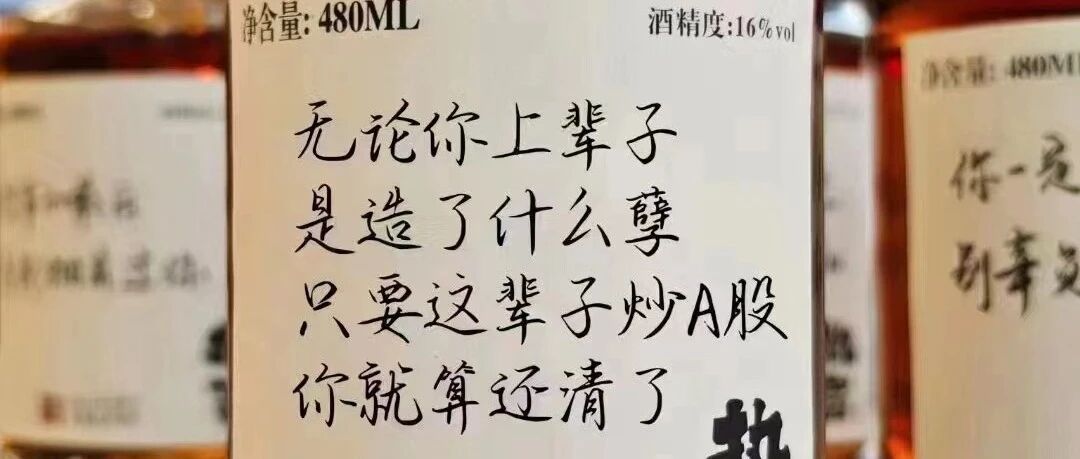 净含量: 480ML
酒精度:16%vol
无论你上辈子
是造了什么孽
只要这辈子炒A股
你就算还清了
净含量: 480ML
你一定
别辜